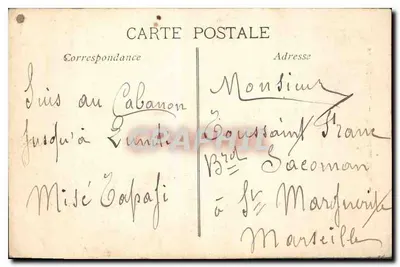 CARTE POSTALE
Correspondance
Suis au Cabanon
Jusqu'à Lundi
Misé Tapafi
Adresse
Monsieur
Toussaint Franc
Brd Sacoman
à St Marguerite
Marseille